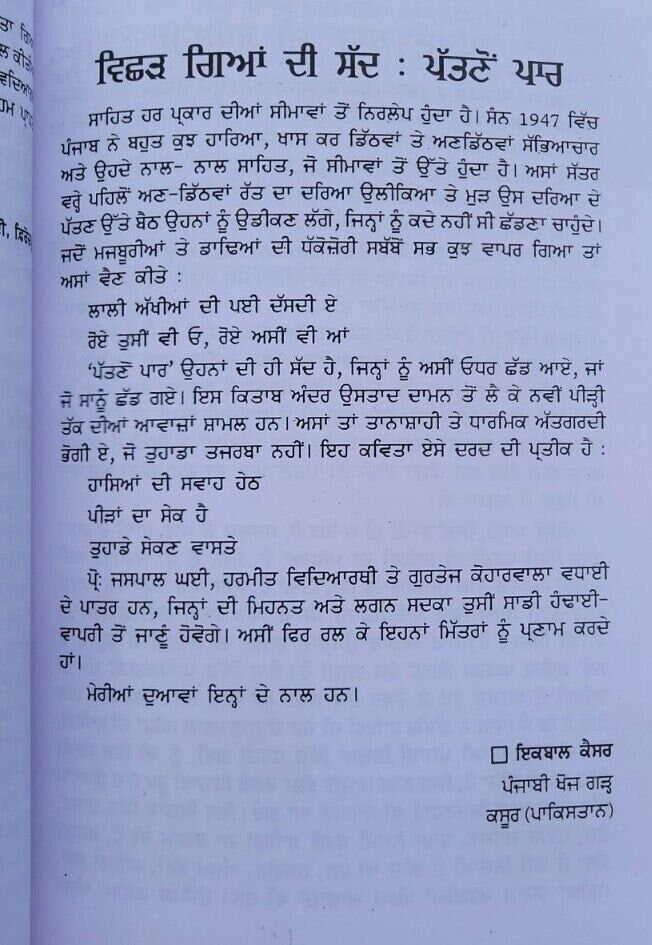 ਵਿਛੜ ਗਿਆਂ ਦੀ ਸੱਦ : ਪੱਤਣੋਂ ਪਾਰ
ਸਾਹਿਤ ਹਰ ਪ੍ਰਕਾਰ ਦੀਆਂ ਸੀਮਾਵਾਂ ਤੋਂ ਨਿਰਲੇਪ ਹੁੰਦਾ ਹੈ। ਸੰਨ 1947 ਵਿੱਚ
ਪੰਜਾਬ ਨੇ ਬਹੁਤ ਕੁਝ ਹਾਰਿਆ, ਖਾਸ ਕਰ ਡਿੱਠਵਾਂ ਤੇ ਅਣਡਿੱਠਵਾਂ ਸੱਭਿਆਚਾਰ
ਅਤੇ ਉਹਦੇ ਨਾਲ- ਨਾਲ ਸਾਹਿਤ, ਜੋ ਸੀਮਾਵਾਂ ਤੋਂ ਉੱਤੇ ਹੁੰਦਾ ਹੈ। ਅਸਾਂ ਸੱਤਰ
ਵਰ੍ਹੇ ਪਹਿਲੋਂ ਅਣ-ਡਿੱਠਵਾਂ ਰੱਤ ਦਾ ਦਰਿਆ ਉਲੀਕਿਆ ਤੇ ਮੁੜ ਉਸ ਦਰਿਆ ਦੇ
ਪੱਤਣ ਉੱਤੇ ਬੈਠ ਉਹਨਾਂ ਨੂੰ ਉਡੀਕਣ ਲੱਗੇ, ਜਿਨ੍ਹਾਂ ਨੂੰ ਕਦੇ ਨਹੀਂ ਸੀ ਛੱਡਣਾ ਚਾਹੁੰਦੇ।
ਜਦੋਂ ਮਜਬੂਰੀਆਂ ਤੇ ਡਾਢਿਆਂ ਦੀ ਧੱਕੋਜ਼ੋਰੀ ਸਬੱਬੋਂ ਸਭ ਕੁਝ ਵਾਪਰ ਗਿਆ ਤਾਂ
ਅਸਾਂ ਵੈਣ ਕੀਤੇ :
ਲਾਲੀ ਅੱਖੀਆਂ ਦੀ ਪਈ ਦੱਸਦੀ ਏ
ਰੋਏ ਤੁਸੀਂ ਵੀ ਓ, ਰੋਏ ਅਸੀਂ ਵੀ ਆਂ
‘ਪੱਤਣੋਂ ਪਾਰ’ ਉਹਨਾਂ ਦੀ ਹੀ ਸੱਦ ਹੈ, ਜਿਨ੍ਹਾਂ ਨੂੰ ਅਸੀਂ ਓਧਰ ਛੱਡ ਆਏ, ਜਾਂ
ਜੋ ਸਾਨੂੰ ਛੱਡ ਗਏ। ਇਸ ਕਿਤਾਬ ਅੰਦਰ ਉਸਤਾਦ ਦਾਮਨ ਤੋਂ ਲੈ ਕੇ ਨਵੀਂ ਪੀੜ੍ਹੀ
ਤੱਕ ਦੀਆਂ ਆਵਾਜ਼ਾਂ ਸ਼ਾਮਲ ਹਨ। ਅਸਾਂ ਤਾਂ ਤਾਨਾਸ਼ਾਹੀ ਤੇ ਧਾਰਮਿਕ ਅੱਤਗਰਦੀ
ਭੋਗੀ ਏ, ਜੋ ਤੁਹਾਡਾ ਤਜਰਬਾ ਨਹੀਂ। ਇਹ ਕਵਿਤਾ ਏਸੇ ਦਰਦ ਦੀ ਪ੍ਰਤੀਕ ਹੈ :
ਹਾਸਿਆਂ ਦੀ ਸਵਾਹ ਹੇਠ
ਪੀੜਾਂ ਦਾ ਸੇਕ ਹੈ
ਤੁਹਾਡੇ ਸੇਕਣ ਵਾਸਤੇ
ਪ੍ਰੋ: ਜਸਪਾਲ ਘਈ, ਹਰਮੀਤ ਵਿਦਿਆਰਥੀ ਤੇ ਗੁਰਤੇਜ ਕੋਹਾਰਵਾਲਾ ਵਧਾਈ
ਦੇ ਪਾਤਰ ਹਨ, ਜਿਨ੍ਹਾਂ ਦੀ ਮਿਹਨਤ ਅਤੇ ਲਗਨ ਸਦਕਾ ਤੁਸੀਂ ਸਾਡੀ ਹੰਢਾਈ-
ਵਾਪਰੀ ਤੋਂ ਜਾਣੂੰ ਹੋਵੋਗੇ। ਅਸੀਂ ਫਿਰ ਰਲ ਕੇ ਇਹਨਾਂ ਮਿੱਤਰਾਂ ਨੂੰ ਪ੍ਰਣਾਮ ਕਰਦੇ
ਹਾਂ।
ਮੇਰੀਆਂ ਦੁਆਵਾਂ ਇਨ੍ਹਾਂ ਦੇ ਨਾਲ ਹਨ।
ਇਕਬਾਲ ਕੈਸਰ
ਪੰਜਾਬੀ ਖੋਜ ਗੜ੍ਹ
ਕਸੂਰ (ਪਾਕਿਸਤਾਨ)